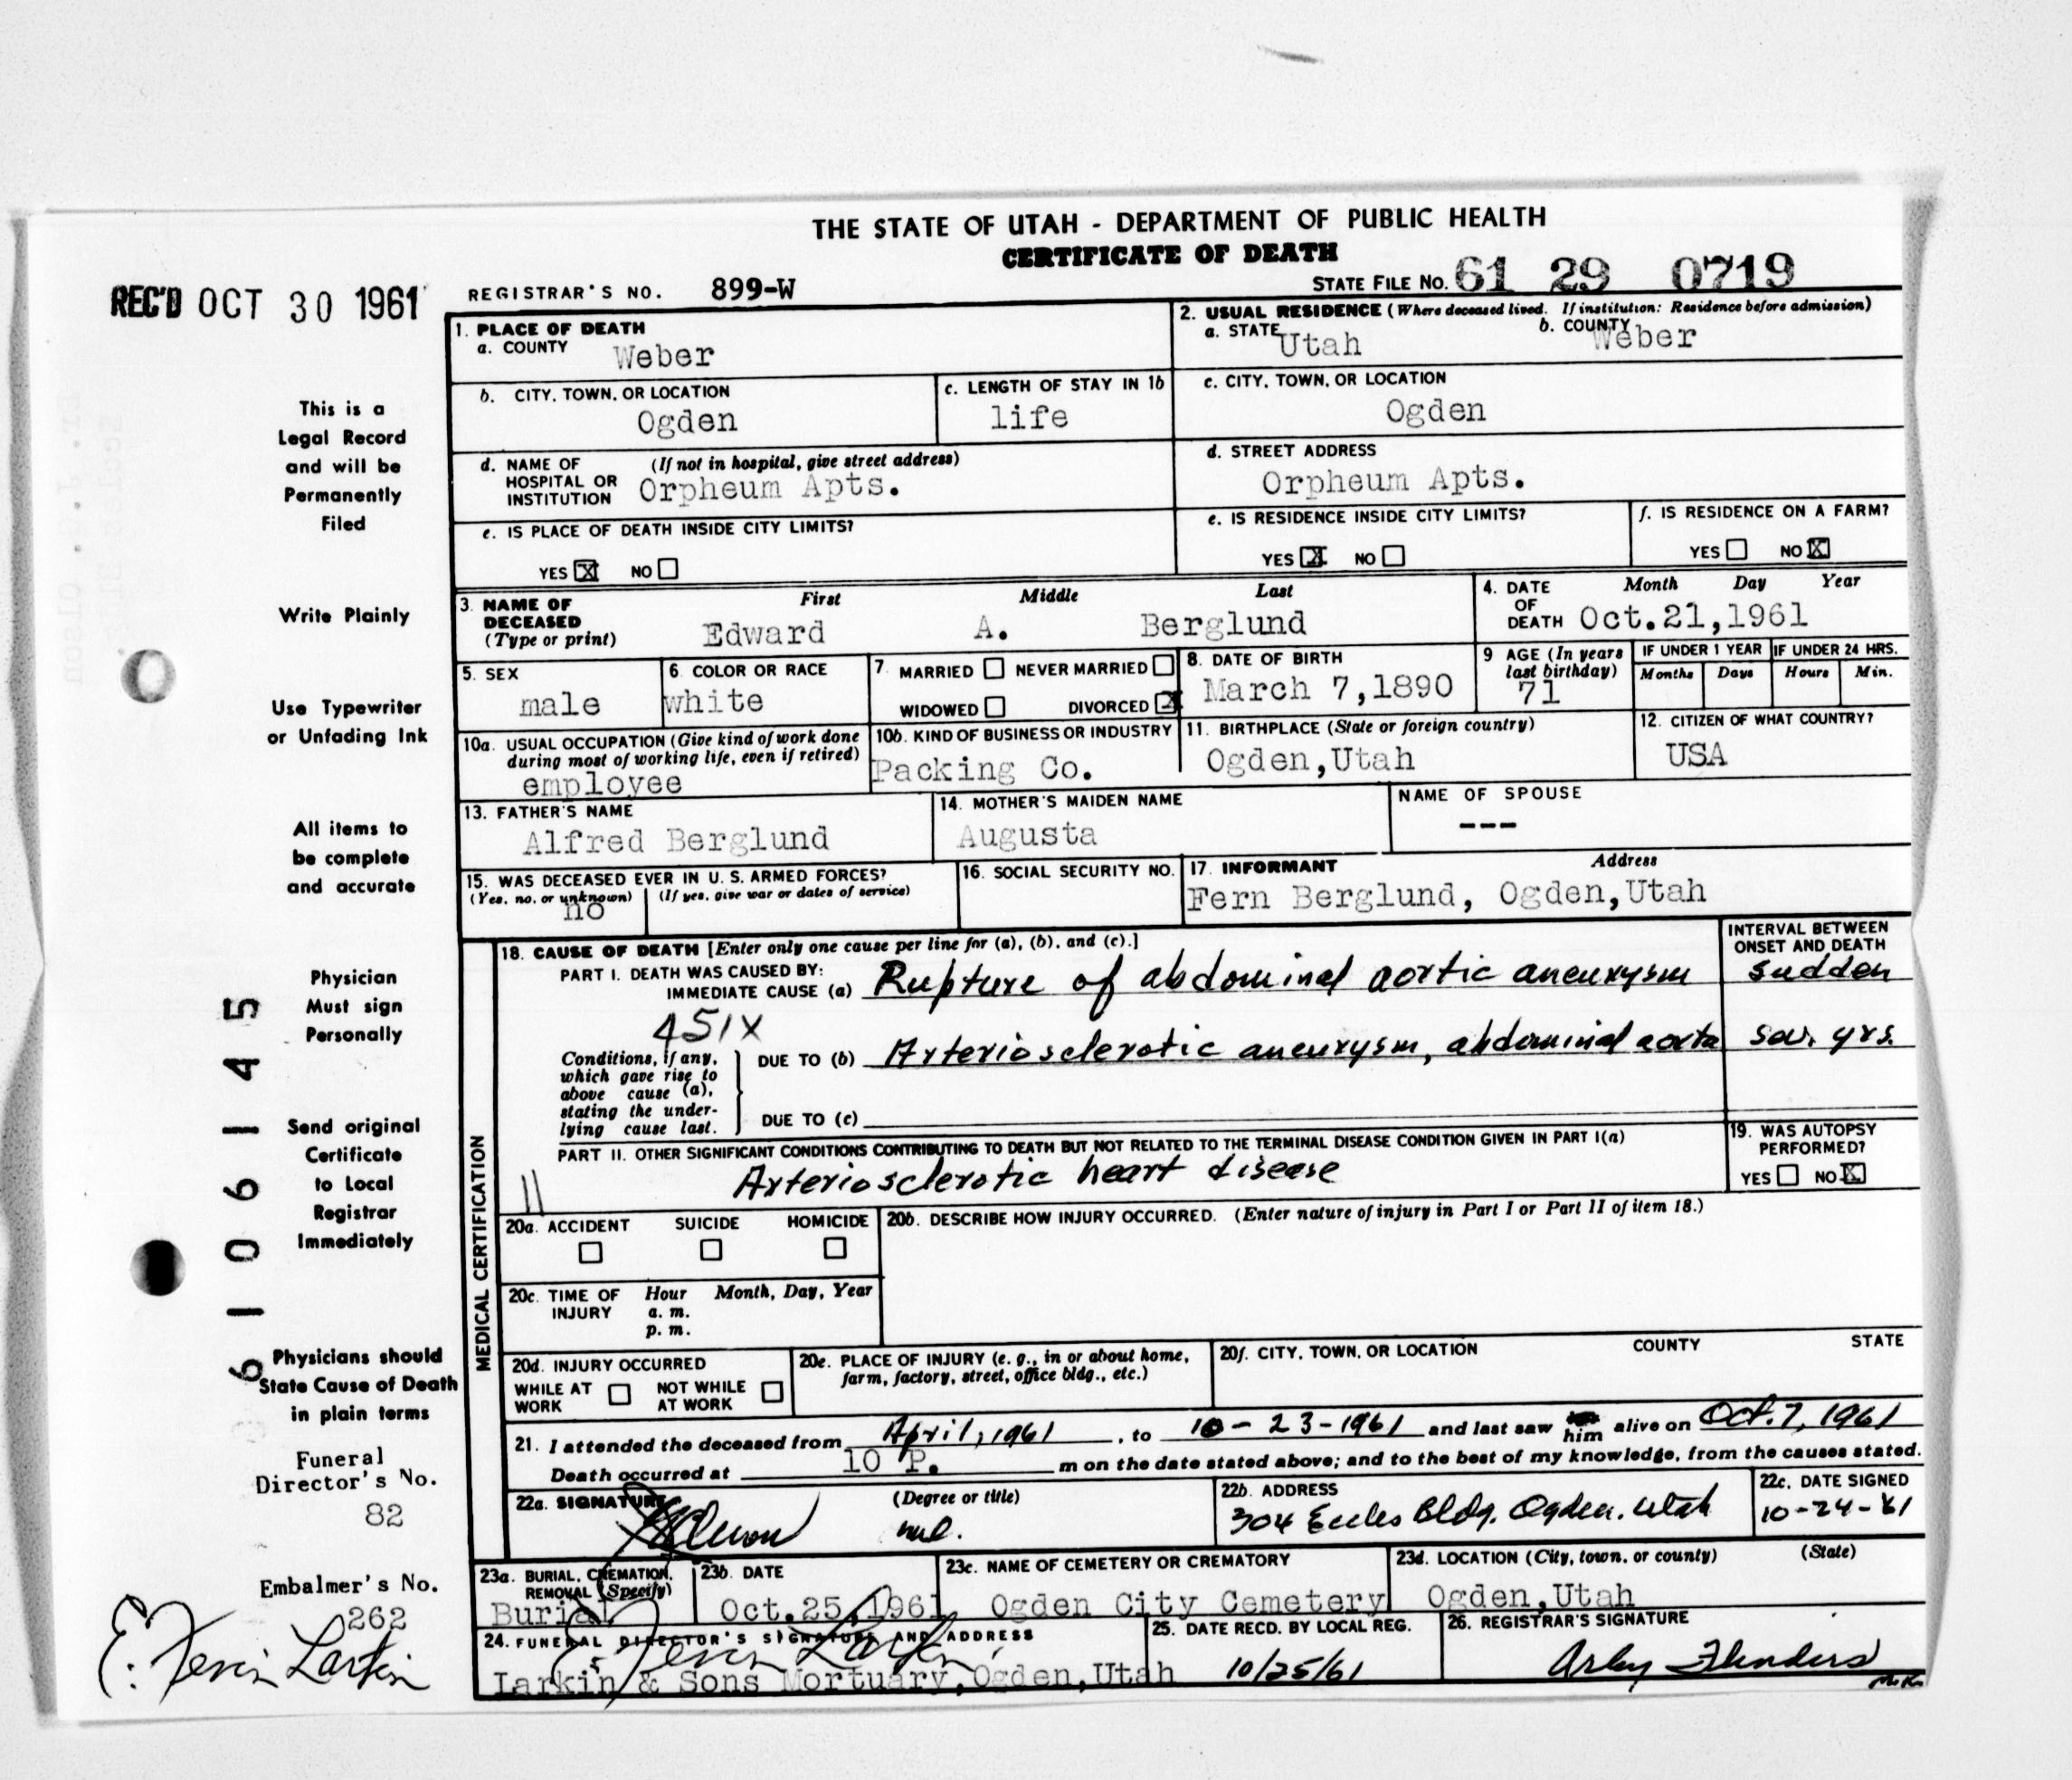 THE STATE OF UTAH - DEPARTMENT OF PUBLIC HEALTH
CERTIFICATE OF DEATH
REC'D OCT 30 1961
REGISTRAR'S NO. 899-W
STATE FILE NO. 61 29 0719
1. PLACE OF DEATH
a. COUNTY Weber
2. USUAL RESIDENCE (Where deceased lived. If institution: Residence before admission)
a. STATE Utah b. COUNTY Weber
b. CITY, TOWN, OR LOCATION
Ogden
c. LENGTH OF STAY IN 1b
life
c. CITY, TOWN, OR LOCATION
Ogden
d. NAME OF HOSPITAL OR INSTITUTION (If not in hospital, give street address)
Orpheum Apts.
d. STREET ADDRESS
Orpheum Apts.
e. IS PLACE OF DEATH INSIDE CITY LIMITS?
YES X NO
e. IS RESIDENCE INSIDE CITY LIMITS?
YES X NO
f. IS RESIDENCE ON A FARM?
YES NO X
3. NAME OF DECEASED (Type or print)
First Middle Last
Edward A. Berglund
4. DATE OF DEATH Month Day Year
Oct.21,1961
5. SEX
male
6. COLOR OR RACE
white
7. MARRIED NEVER MARRIED
WIDOWED DIVORCED X
8. DATE OF BIRTH
March 7,1890
9 AGE (In years last birthday)
71
IF UNDER 1 YEAR IF UNDER 24 HRS.
Months Days Hours Min.
10a. USUAL OCCUPATION (Give kind of work done during most of working life, even if retired)
employee
10b. KIND OF BUSINESS OR INDUSTRY
Packing Co.
11. BIRTHPLACE (State or foreign country)
Ogden,Utah
12. CITIZEN OF WHAT COUNTRY?
USA
13. FATHER'S NAME
Alfred Berglund
14. MOTHER'S MAIDEN NAME
Augusta
NAME OF SPOUSE
---
15. WAS DECEASED EVER IN U. S. ARMED FORCES?
(Yes, no, or unknown) (If yes, give war or dates of service)
no
16. SOCIAL SECURITY NO.
17. INFORMANT Address
Fern Berglund, Ogden,Utah
MEDICAL CERTIFICATION
18. CAUSE OF DEATH [Enter only one cause per line for (a), (b), and (c).]
INTERVAL BETWEEN ONSET AND DEATH
PART I. DEATH WAS CAUSED BY:
IMMEDIATE CAUSE (a) Rupture of abdominal aortic aneurysm sudden
451X
Conditions, if any, which gave rise to above cause (a), stating the underlying cause last.
DUE TO (b) Arteriosclerotic aneurysm, abdominal aorta sev. yrs.
DUE TO (c)
PART II. OTHER SIGNIFICANT CONDITIONS CONTRIBUTING TO DEATH BUT NOT RELATED TO THE TERMINAL DISEASE CONDITION GIVEN IN PART I(a)
11 Arteriosclerotic heart disease
19. WAS AUTOPSY PERFORMED?
YES NO X
20a. ACCIDENT SUICIDE HOMICIDE
20b. DESCRIBE HOW INJURY OCCURRED. (Enter nature of injury in Part I or Part II of item 18.)
20c. TIME OF INJURY Hour Month, Day, Year
a. m.
p. m.
20d. INJURY OCCURRED
WHILE AT WORK NOT WHILE AT WORK
20e. PLACE OF INJURY (e. g., in or about home, farm, factory, street, office bldg., etc.)
20f. CITY, TOWN, OR LOCATION COUNTY STATE
21. I attended the deceased from April, 1961, to 10-23-1961 and last saw him alive on Oct. 7, 1961
Death occurred at 10 P. m on the date stated above; and to the best of my knowledge, from the causes stated.
22a. SIGNATURE (Degree or title)
md.
22b. ADDRESS
304 Eccles Bldg. Ogden. Utah
22c. DATE SIGNED
10-24-61
23a. BURIAL, CREMATION, REMOVAL (Specify)
Burial
23b. DATE
Oct.25,1961
23c. NAME OF CEMETERY OR CREMATORY
Ogden City Cemetery
23d. LOCATION (City, town, or county) (State)
Ogden,Utah
24. FUNERAL DIRECTOR'S SIGNATURE AND ADDRESS
Larkin & Sons Mortuary,Ogden,Utah
25. DATE RECD. BY LOCAL REG.
10/25/61
26. REGISTRAR'S SIGNATURE
This is a
Legal Record
and will be
Permanently
Filed
Write Plainly
Use Typewriter
or Unfading Ink
All items to
be complete
and accurate
Physician
Must sign
Personally
Send original
Certificate
to Local
Registrar
Immediately
Physicians should
State Cause of Death
in plain terms
6106145
Funeral
Director's No.
82
Embalmer's No.
262